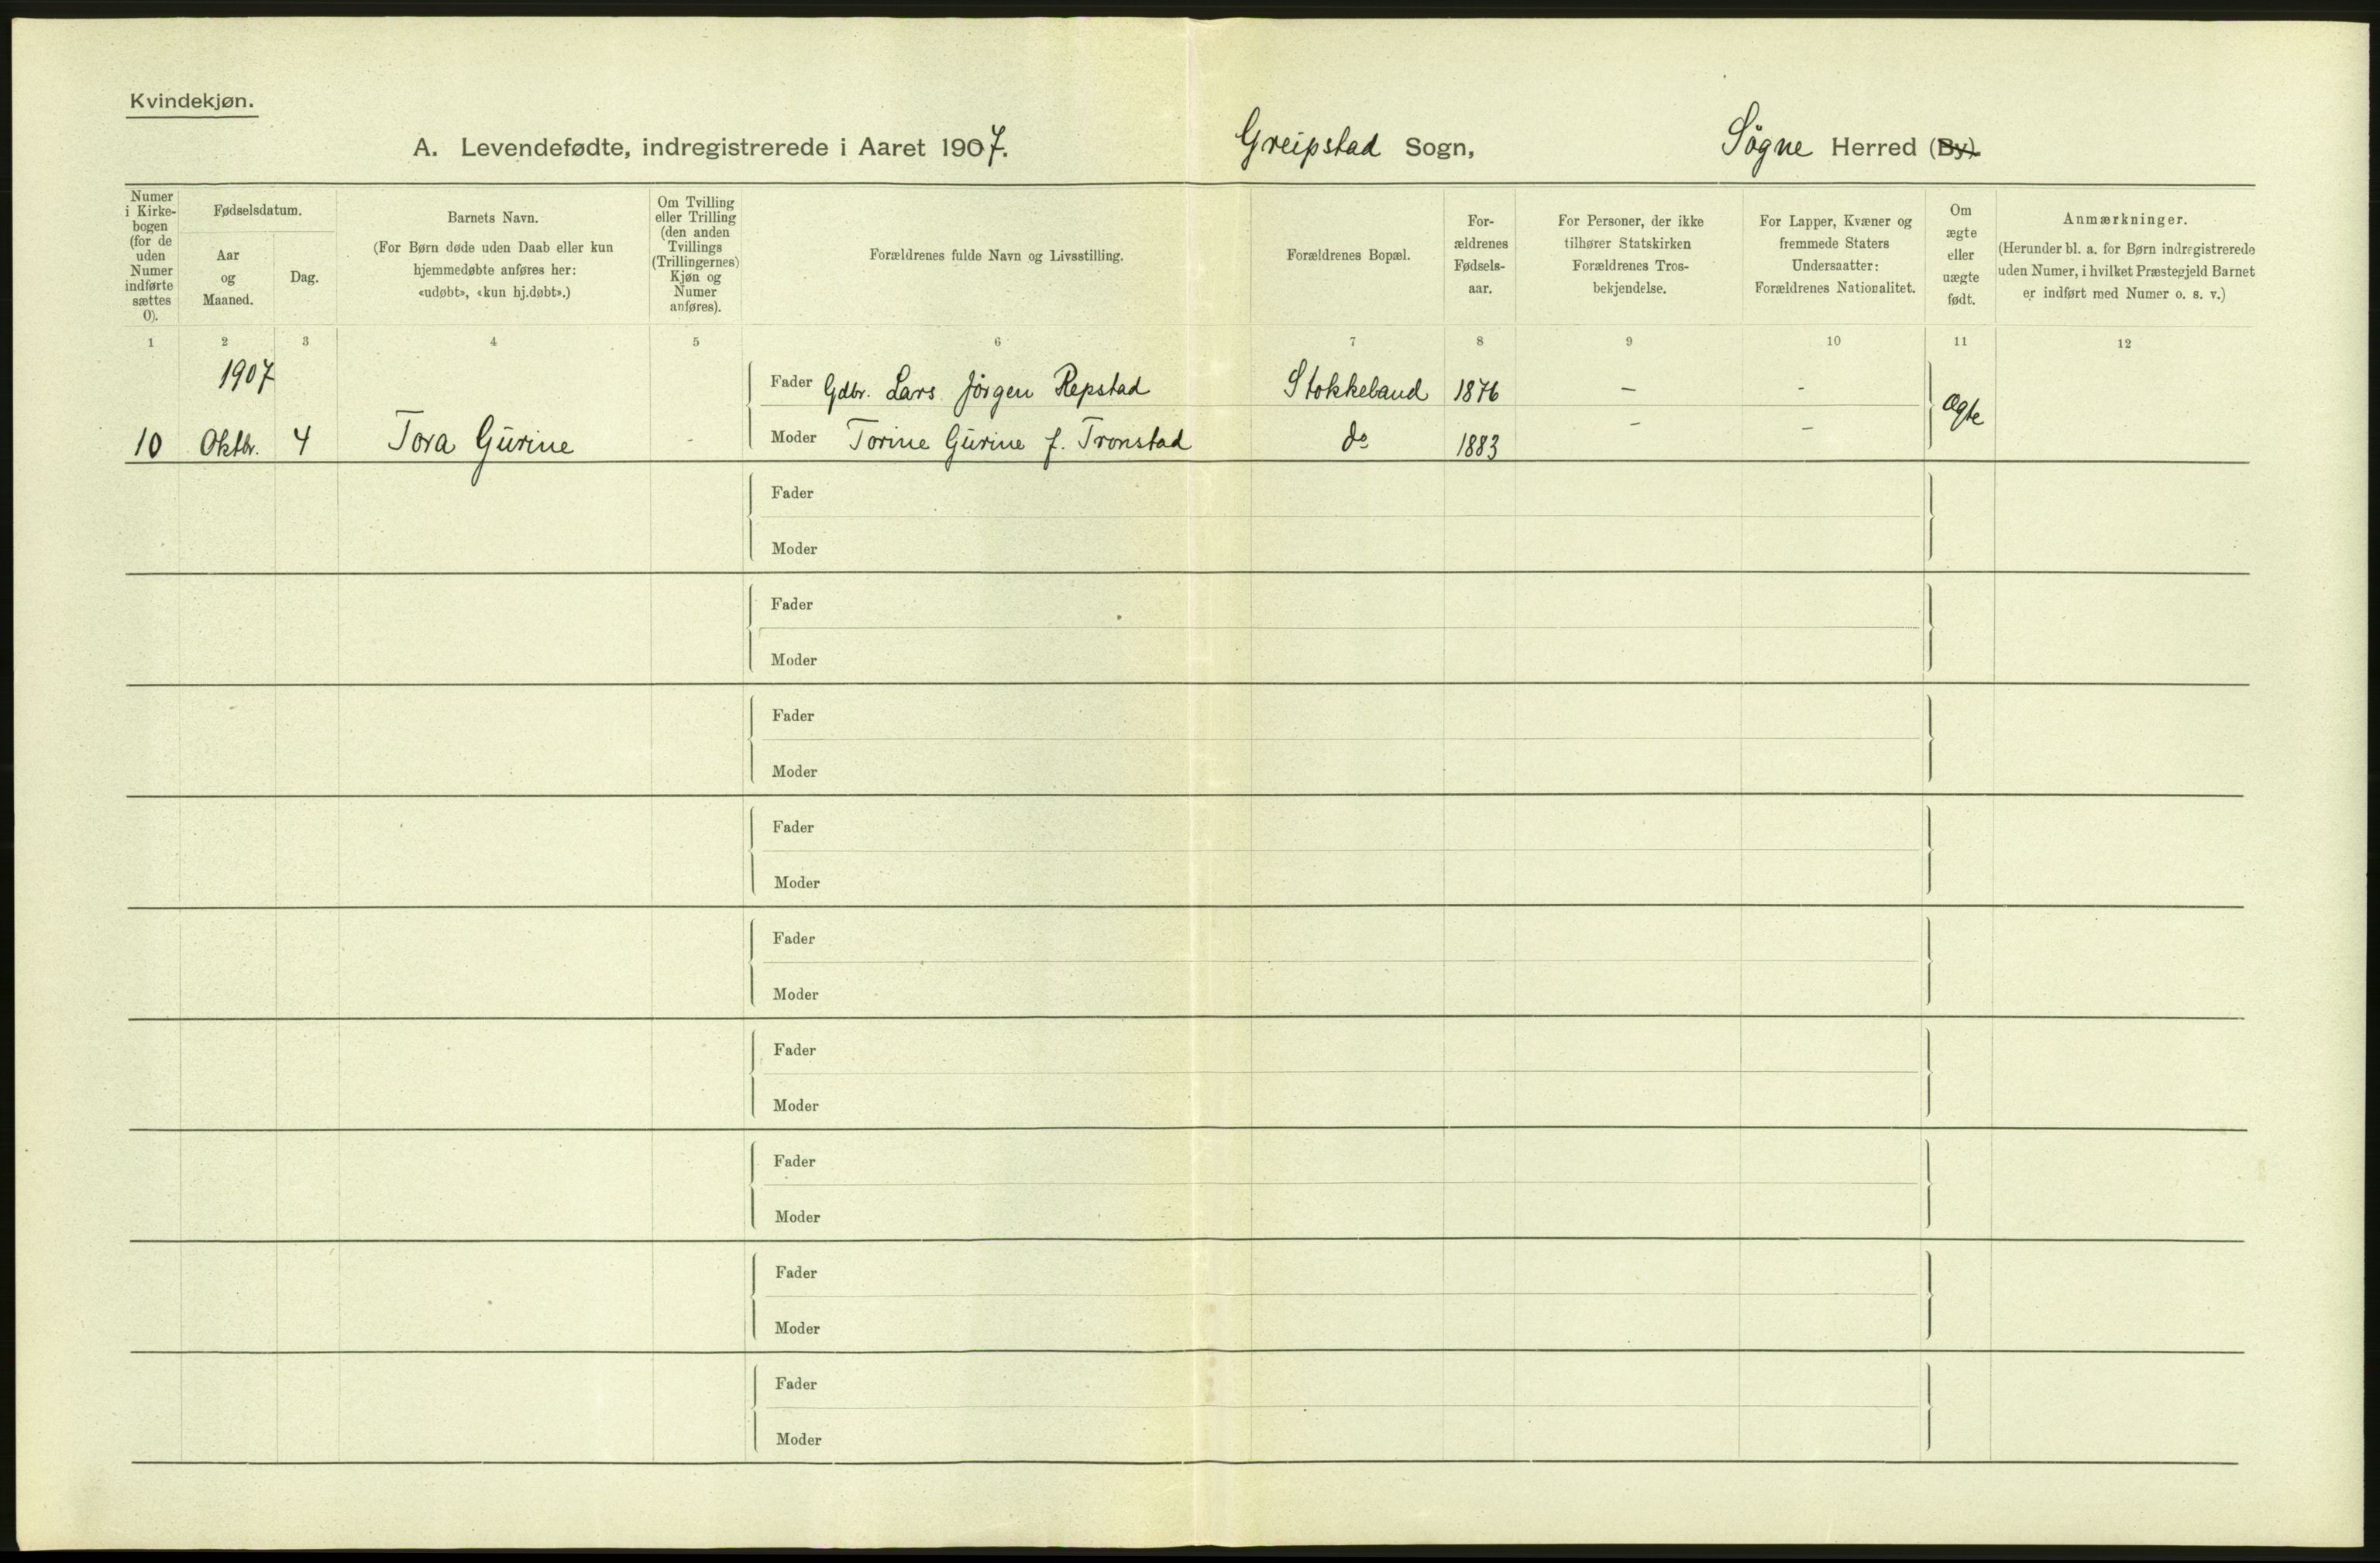 Kvindekjøn.
A. Levendefødte, indregistrerede i Aaret 1907. Greipstad Sogn, Søgne Herred (By).
Numer i Kirke- bogen (for de uden Numer indførte sættes 0).
Fødselsdatum.
Aar og Maaned.
Dag.
Barnets Navn.
(For Børn døde uden Daab eller kun
hjemmedøbte anføres her:
«udøbt», «kun hj.døbt».)
Om Tvilling
eller Trilling
(den anden
Tvillings
(Trillingernes)
Kjøn og
Numer
anføres).
Forældrenes fulde Navn og Livsstilling.
Forældrenes Bopæl.
For-
ældrenes
Fødsels-
aar.
For Personer, der ikke
tilhører Statskirken
Forældrenes Tros-
bekjendelse.
For Lapper, Kvæner og
fremmede Staters
Undersaatter:
Forældrenes Nationalitet.
Om
ægte
eller
uægte
født.
Anmærkninger.
(Herunder bl. a. for Børn indregistrerede
uden Numer, i hvilket Præstegjeld Barnet
er indført med Numer o. s. v.)
1 2 3 4 5 6 7 8 9 10 11 12
1907
Fader Gdbr. Lars Jörgen Repstad Stokkeland 1876 – -
Ægte
10 Oktbr. 4 Tora Gurine - Moder Torine Gurine f. Tronstad do 1883 – –
Fader
Moder
Fader
Moder
Fader
Moder
Fader
Moder
Fader
Moder
Fader
Moder
Fader
Moder
Fader
Moder
Fader
Moder